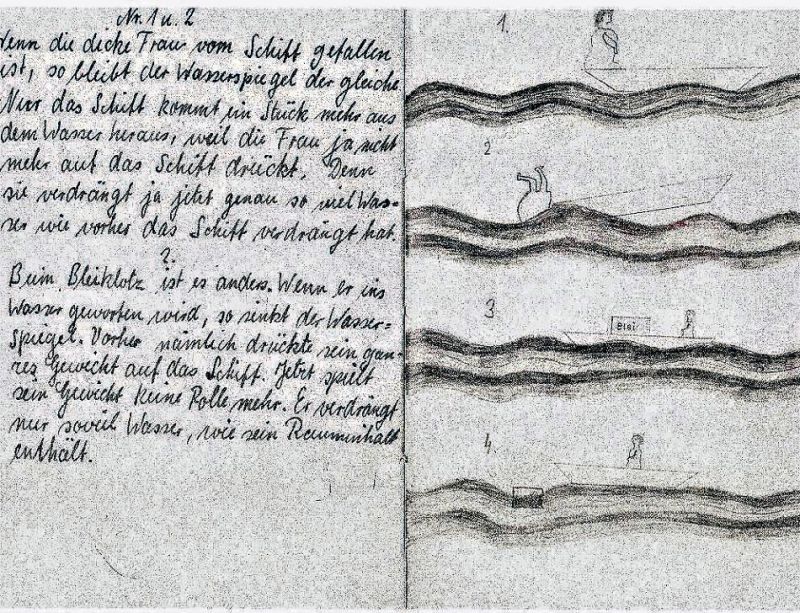 Nr. 1 u. 2
Wenn die dicke Frau vom Schiff gefallen
ist, so bleibt der Wasserspiegel der gleiche.
Nur das Schiff kommt ein Stück mehr aus
dem Wasser heraus, weil die Frau ja nicht
mehr auf das Schiff drückt. Denn
sie verdrängt ja jetzt genau so viel Was-
ser wie vorher das Schiff verdrängt hat.
2.
Beim Bleiklotz ist es anders. Wenn er ins
Wasser geworfen wird, so sinkt der Wasser=
spiegel. Vorher nämlich drückte sein gan-
zes Gewicht auf das Schiff. Jetzt spielt
sein Gewicht keine Rolle mehr. Er verdrängt
nur soviel Wasser, wie sein Rauminhalt
enthält.
1.
2
3
Blei
4.